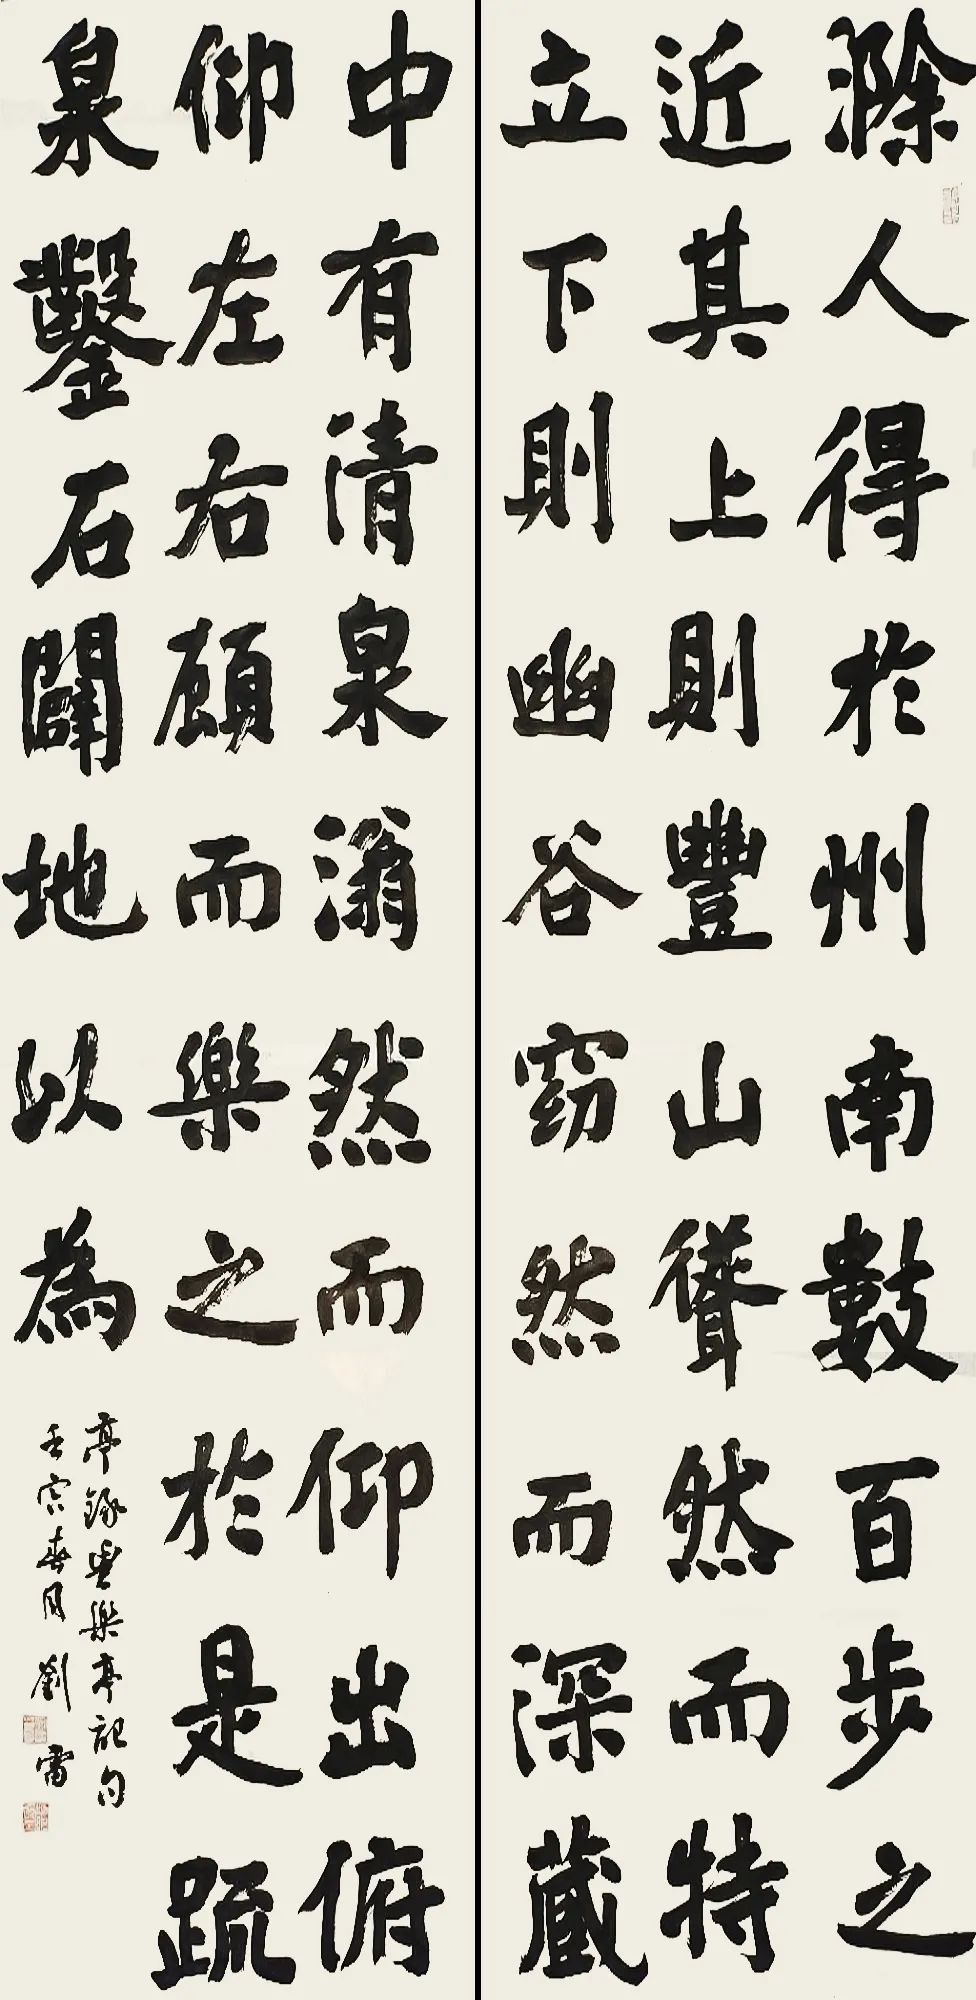 滁人得於州南數百步之
近其上則豐山聳然而特
立下則幽谷窈然而深藏
中有清泉滃然而仰出俯
仰左右顧而樂之於是疏
泉鑿石闢地以為
亭錄豐樂亭記句
壬寅春月劉雷